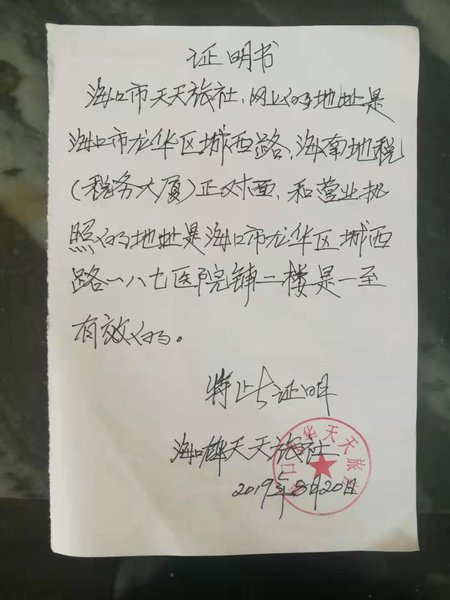 证明书
海口市天天旅社,网上的地址是
海口市龙华区城西路,海南地税
(税务大厦)正对面,和营业执
照的地址是海口市龙华区城西
路一八七医院铺二楼是一至
有效的。
特此证明
海口华天天旅社
2019年8月20日
口 华天天旅